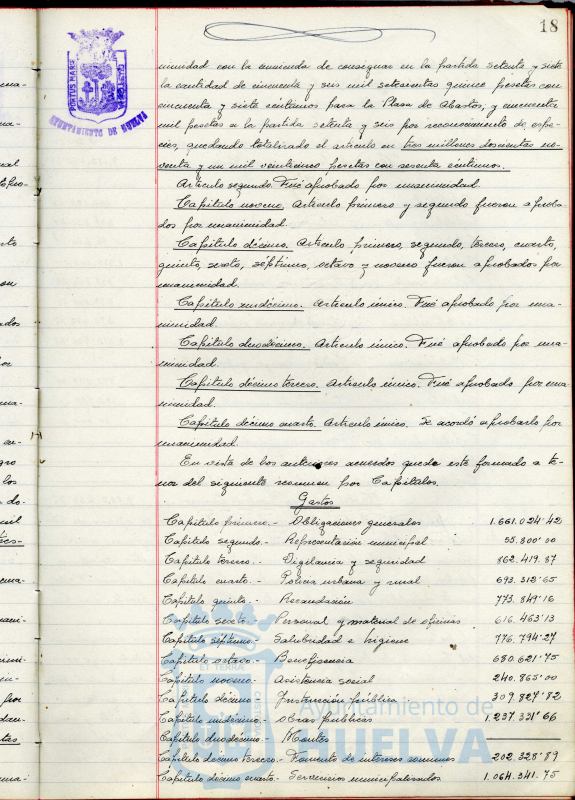 18
PORTUS MARIS
AYUNTAMIENTO DE HUELVA
nimidad con la enmienda de consignar en la partida setenta y siete
la cantidad de cincuenta y seis mil setecientas quince pesetas con
cincuenta y siete céntimos para la Plaza de Abastos, y cincuenta
mil pesetas a la partida setenta y seis por reconocimiento de espe-
cies, quedando totalizado el artículo en tres millones doscientas no-
venta y un mil veinticinco pesetas con sesenta céntimos.
Artículo segundo. Fué aprobado por unanimidad.
Capítulo noveno. Artículo primero y segundo fueron aproba-
dos por unanimidad.
Capítulo décimo. Artículo, primero, segundo, tercero, cuarto,
quinto, sexto, séptimo, octavo y noveno fueron aprobados por
unanimidad.
Capítulo undécimo. Artículo único. Fué aprobado por una-
nimidad.
Capítulo duodécimo. Artículo único. Fué aprobado por una-
nimidad.
Capítulo décimo tercero. Artículo único. Fué aprobado por una-
nimidad.
Capítulo décimo cuarto. Artículo único. Se acordó aprobarlo por
unanimidad.
En vista de los anteriores acuerdos queda este formado a te-
nor del siguiente resumen por Capítulos.
Gastos
Capítulo primero.- Obligaciones generales 1.661.024'42
Capítulo segundo.- Representación municipal 55.800'00
Capítulo tercero.- Vigilancia y seguridad 862.419.87
Capítulo cuarto.- Policía urbana y rural 693.318'65
Capítulo quinto.- Recaudación 773.849'16
Capítulo sexto.- Personal y material de oficinas 616.463'13
Capítulo séptimo.- Salubridad e higiene 776.794'27
Capítulo octavo.- Beneficencia 680.621'75
Capítulo noveno.- Asistencia social 240.865'00
Capítulo décimo.- Instrucción pública 309.827'82
Capítulo undécimo.- Obras públicas 1.237.321'66
Capítulo duodécimo.- Montes
Capítulo décimo tercero.- Fomento de intereses comunes 202.328'89
Capítulo décimo cuarto.- Servicios municipalizados 1.064.341.75
Ayuntamiento de
HUELVA